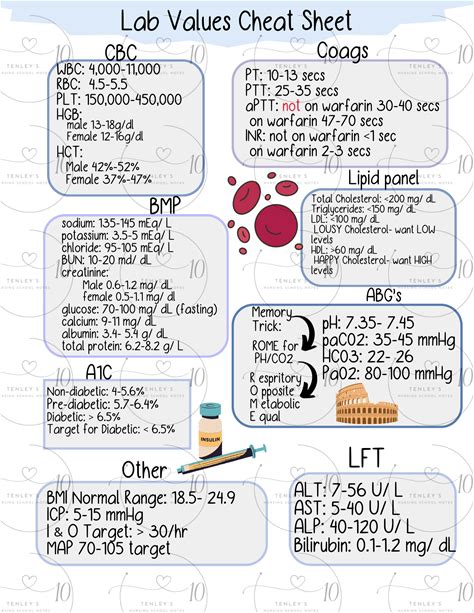 Lab Values Cheat Sheet
CBC
WBC: 4,000-11,000
RBC: 4.5-5.5
PLT: 150,000-450,000
HGB:
male 13-18g/dl
Female 12-16g/dl
HCT:
Male 42%-52%
Female 37%-47%
Coags
PT: 10-13 secs
PTT: 25-35 secs
aPTT: not on warfarin 30-40 secs
on warfarin 47-70 secs
INR: not on warfarin <1 sec
on warfarin 2-3 secs
BMP
sodium: 135-145 mEq/ L
potassium: 3.5-5 mEq/ L
chloride: 95-105 mEq/ L
BUN: 10-20 md/ dL
creatinine:
Male 0.6-1.2 mg/ dL
female 0.5-1.1 mg/ dL
glucose: 70-100 mg/ dL (fasting)
calcium: 9-11 mg/ dL
albumin: 3.4- 5.4 g/ dL
total protein: 6.2-8.2 g/ L
Lipid panel
Total Cholesterol: <200 mg/ dL
Triglycerides: <150 mg/ dL
LDL: <100 mg/ dL
LOUSY Cholesterol- want LOW
levels
HDL: >60 mg/ dL
HAPPY Cholesterol- want HIGH
levels
ABG's
Memory
Trick:
ROME for
PH/CO2
R espritory
O pposite
M etabolic
E qual
pH: 7.35- 7.45
paCO2: 35-45 mmHg
HCO3: 22- 26
PaO2: 80-100 mmHg
A1C
Non-diabetic: 4-5.6%
Pre-diabetic: 5.7-6.4%
Diabetic: > 6.5%
Target for Diabetic: < 6.5%
INSULIN
Other
BMI Normal Range: 18.5- 24.9
ICP: 5-15 mmHg
I & O Target: > 30/hr
MAP 70-105 target
LFT
ALT: 7-56 U/ L
AST: 5-40 U/ L
ALP: 40-120 U/ L
Bilirubin: 0.1-1.2 mg/ dL
TENLEY'S
NURSING SCHOOL NOTES